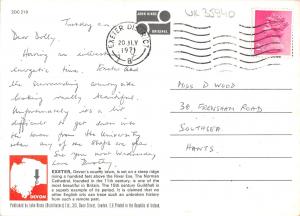 2DC 219
Tuesday a.m.
Dear Dolly,
Having an interesting
energetic time. Exeter and
the surrounding countryside
looking really beautiful.
Unfortunately is a bit
difficult to get down into
the town from the University
when any of the shops are open
See you next Wednesday
Love Dorothy
JOHN HINDE
ORIGINAL
EXETER DEVON
20 JLY
1971
B
UK 35940
MISS D WOOD
38 FRENSHAM ROAD
SOUTHSEA
HANTS.
DEVON
EXETER, Devon's county town, is set on a steep ridge
rising a hundred feet above the River Exe. The Norman
Cathedral, founded in the 11th century, is one of the
most beautiful in Britain. The 15th century Guildhall is
a superb example of its period. It is claimed that no
other English city can trace such an unbroken record
of habitation and commerce.
Published by John Hinde (Distributors) Ltd., Oxford Street, London. Printed in the Republic of Ireland.